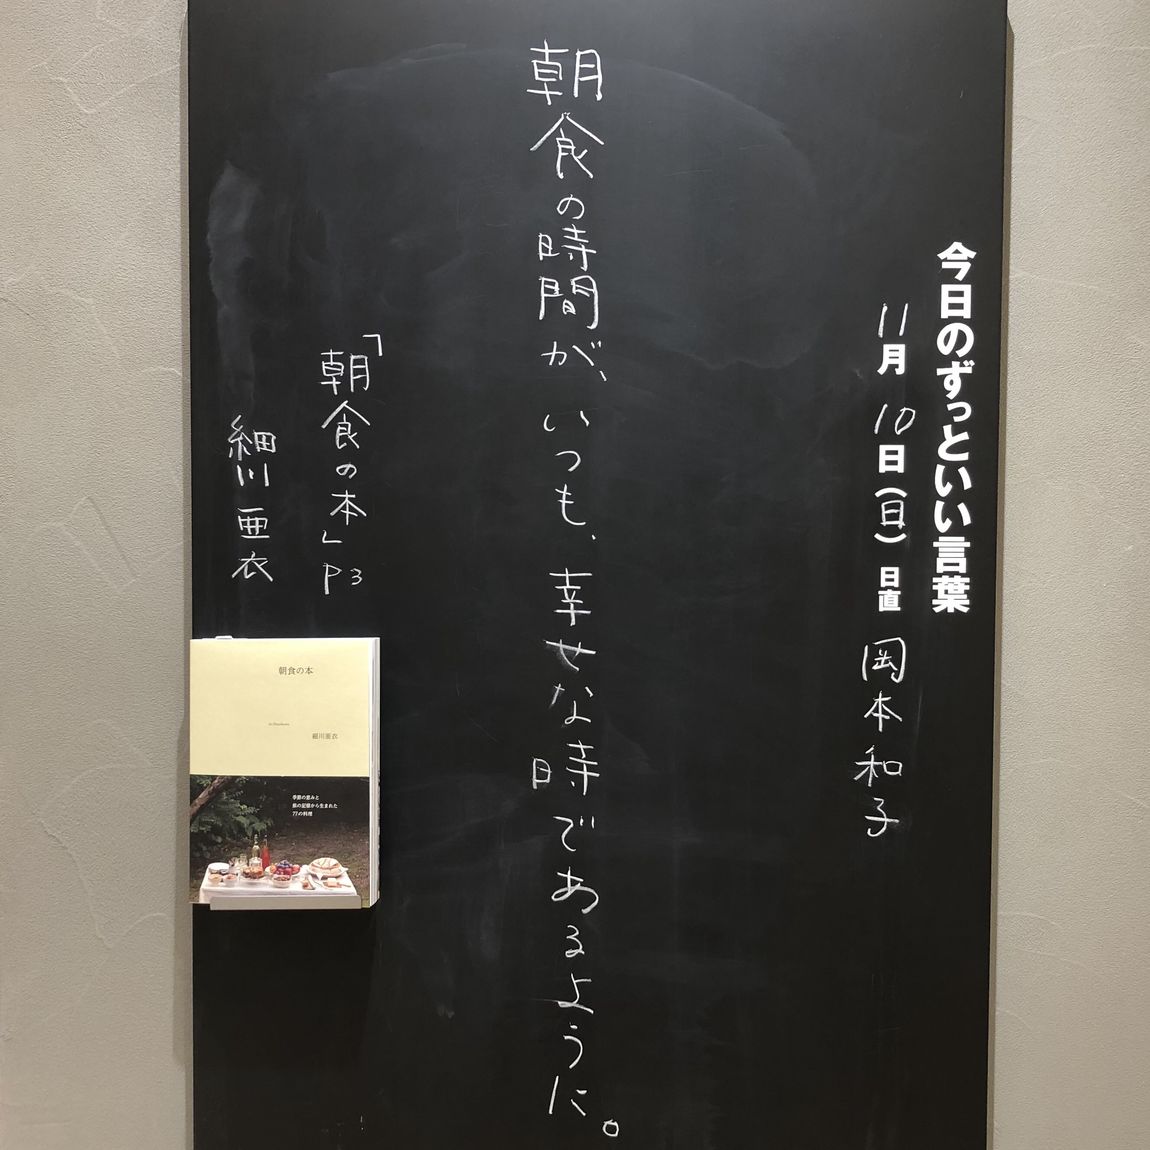 今日のずっといい言葉
11月10日(日) 日直 岡本和子
朝食の時間が、いつも、幸せな時であるように。
「朝食の本」P3
細川亜衣
朝食の本
細川亜衣
季節の恵みと
旅の記憶から生まれた
77の料理